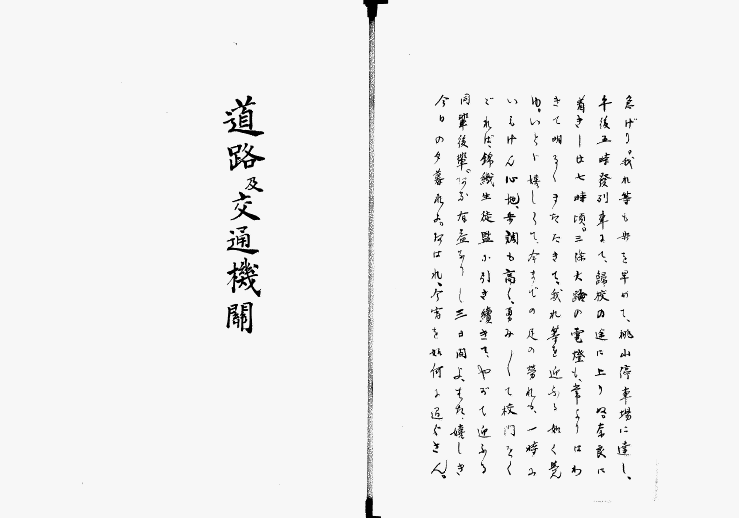 急げり。我れ等も歩を早めて、桃山停車場に達し、
午後五時發列車にて、歸校の途に上り、奈良に
着きしは七時頃。三條大路の電燈も、常よりはわ
きて明るくまたたきて、我れ等を迎ふる如く覺
ゆ。いとゞ嬉しくて、今までの足の勞れも、一時に
いえけん心地、步調も高く、勇みくて校門をく
ぐれば、錦織生徒監に引き續きて、やがて迎ふる
同輩後輩。有益なりし三日間よ、また嬉しき
今日の夕暮れよ。あはれ、今宵を如何に過ごさん。
道路及交通機關